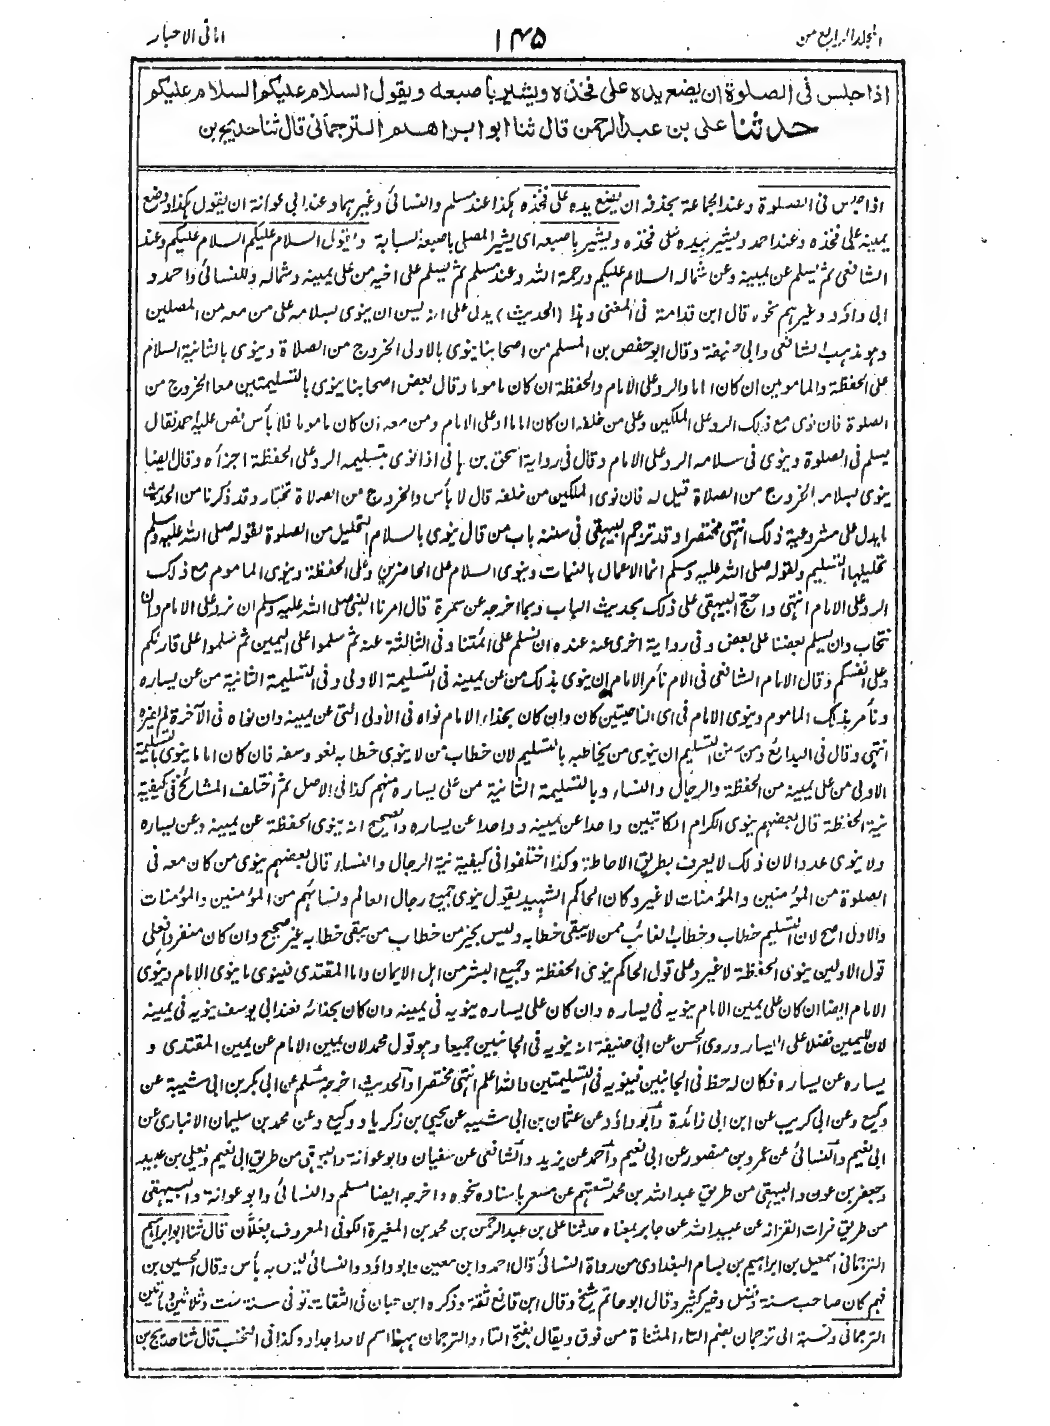 المجلد الرابع من
١٤٥
امانی الاحبار
اذا جلس فی الصلوة ان یضع یده علی فخذه ویشیر باصبعه ویقول السلام علیکم السلام علیکم
حدثنا علی بن عبدالرحمن قال ثنا ابو ابراهیم الترجمانی قال ثنا حدیج بن
اذا جلس فی الصلوة وعند الجماعة بحذفه ان یضع یده علی فخذه هکذا عند مسلم والنسائی وغیرهما وعند ابی عوانة ان یقول هکذا وضع
یمینه علی فخذه وعند احمد ویشیر بیده علی فخذه ویشیر باصبعه ای یشیر المصلی باصبعه السبابة ویقول السلام علیکم السلام علیکم وعند
الشافعی ثم یسلم عن یمینه وعن شماله السلام علیکم ورحمة الله وعند مسلم ثم یسلم علی اخیه من علی یمینه وشماله وللنسائی واحمد و
ابی داؤد وغیرهم نحوه قال ابن قدامة فی المغنی وهذا (الحدیث) یدل علی انه یسن ان ینوی بسلامه علی من معه من المصلین
وهو مذهب الشافعی وابی حنیفة وقال ابو حفص بن المسلم من اصحابنا ینوی بالاولی الخروج من الصلاة وینوی بالثانیة السلام
علی الحفظة والمامومین ان کان اماما والرد علی الامام والحفظة ان کان ماموما وقال بعض اصحابنا ینوی بالتسلیمتین معا الخروج من
الصلوة فان نوی مع ذلک الرد علی الملکین وعلی من خلفه ان کان اماما او علی الامام ومن معه ان کان ماموما فلا بأس نص علیه احمد فقال
یسلم فی الصلوة وینوی فی سلامه الرد علی الامام وقال فی روایة اسحق بن هانی اذا نوی بتسلیمه الرد علی الحفظة اجزأه وقال ایضا
ینوی بسلامه الخروج من الصلاة قیل له فان نوی الملکین من خلفه قال لا بأس والخروج من الصلاة نختار وقد ذکرنا من الحدیث
ما یدل علی مشروعیة ذلک انتهی مختصرا وقد ترجم البیهقی فی سننه باب من قال ینوی بالسلام التحلیل من الصلوة لقوله صلی الله علیه وسلم
تحلیلها التسلیم ولقوله صلی الله علیه وسلم انما الاعمال بالنیات وینوی السلام علی الحاضرین وعلی الحفظة وینوی الماموم مع ذلک
الرد علی الامام انتهی واحتج البیهقی علی ذلک بحدیث الباب وبما اخرجه عن سمرة قال امرنا النبی صلی الله علیه وسلم ان نرد علی الامام وان
نتحاب وان یسلم بعضنا علی بعض وفی روایة اخری عنه عنده ان نسلم علی ائمتنا وفی الثالثة عنه ثم سلموا علی الیمین ثم سلموا علی قارئکم
وعلی انفسکم وقال الامام الشافعی فی الام نأمر الامام ان ینوی بذلک من عن یمینه فی التسلیمة الاولی وفی التسلیمة الثانیة من عن یساره
ونأمر بذلک الماموم وینوی الامام فی ای الناحیتین کان وان کان بحذاء الامام نواه فی الاولی التی عن یمینه وان نواه فی الآخرة لم یضره
انتهی وقال فی البدائع ومن سنن التسلیم ان ینوی من یخاطبه بالتسلیم لان خطاب من لا ینوی خطابه لغو وسفه فان کان اماما ینوی بالتسلیمة
الاولی من علی یمینه من الحفظة والرجال والنساء وبالتسلیمة الثانیة من علی یساره منهم کذا فی الاصل ثم اختلف المشائخ فی کیفیة
نیة الحفظة قال بعضهم ینوی الکرام الکاتبین واحدا عن یمینه وواحدا عن یساره والصحیح انه ینوی الحفظة عن یمینه وعن یساره
ولا ینوی عددا لان ذلک لا یعرف بطریق الاحاطة وکذا اختلفوا فی کیفیة نیة الرجال والنساء قال بعضهم ینوی من کان معه فی
الصلوة من المؤمنین والمؤمنات لا غیر وکان الحاکم الشهید یقول ینوی جمیع رجال العالم ونسائهم من المؤمنین والمؤمنات
والاول اصح لان التسلیم خطاب وخطاب الغائب ممن لا یبقی خطابه ولیس بخیر من خطاب من یبقی خطابه غیر صحیح وان کان منفردا فعلی
قول الاولین ینوی الحفظة لا غیر وعلی قول الحاکم ینوی الحفظة وجمیع البشر من اهل الایمان واما المقتدی فینوی ما ینوی الامام وینوی
الامام ایضا ان کان علی یمین الامام ینویه فی یساره وان کان علی یساره ینویه فی یمینه وان کان بحذائه فعند ابی یوسف ینویه فی یمینه
لان للیمین فضلا علی الیسار وروی الحسن عن ابی حنیفة انه ینویه فی الجانبین جمیعا وهو قول محمد لان یمین الامام عن یمین المقتدی و
یساره عن یساره فکان له حظ فی الجانبین فینویه فی التسلیمتین والله اعلم انتهی مختصرا والحدیث اخرجه مسلم عن ابی بکر بن ابی شیبة عن
وکیع وعن ابی کریب عن ابن ابی زائدة وابو داؤد عن عثمان بن ابی شیبه عن یحیی بن زکریا ووکیع وعن محمد بن سلیمان الانباری عن
ابی نعیم والنسائی عن عمرو بن منصور عن ابی نعیم واحمد عن یزید والشافعی عن سفیان وابو عوانة والبیهقی من طریق ابی نعیم ویعلی بن عبید
وجعفر بن عون والبیهقی من طریق عبدالله بن محمد تسعتهم عن مسعر باسناده نحوه واخرجه ایضا مسلم والنسائی وابو عوانة والبیهقی
من طریق فرات القزاز عن عبیدالله عن جابر بمعناه حدثنا علی بن عبدالرحمن بن محمد بن المغیرة الکوفی المعروف بعلان قال ثنا ابو ابراهیم
الترجمانی اسمعیل بن ابراهیم بن بسام البغدادی من رواة النسائی قال احمد وابن معین وابو داؤد والنسائی لیس به بأس وقال الحسین بن
فهم کان صاحب سنة وفضل وخیر کثیر وقال ابو حاتم شیخ وقال ابن قانع ثقة وذکره ابن حبان فی الثقات توفی سنة ست وثلاثین ومأتین
الترجمانی ونسبة الی ترجمان بضم التاء المثناة من فوق ویقال بفتح التاء والترجمان بهذا اسم لاحد اجداده کذا فی النخب قال ثنا حدیج بن